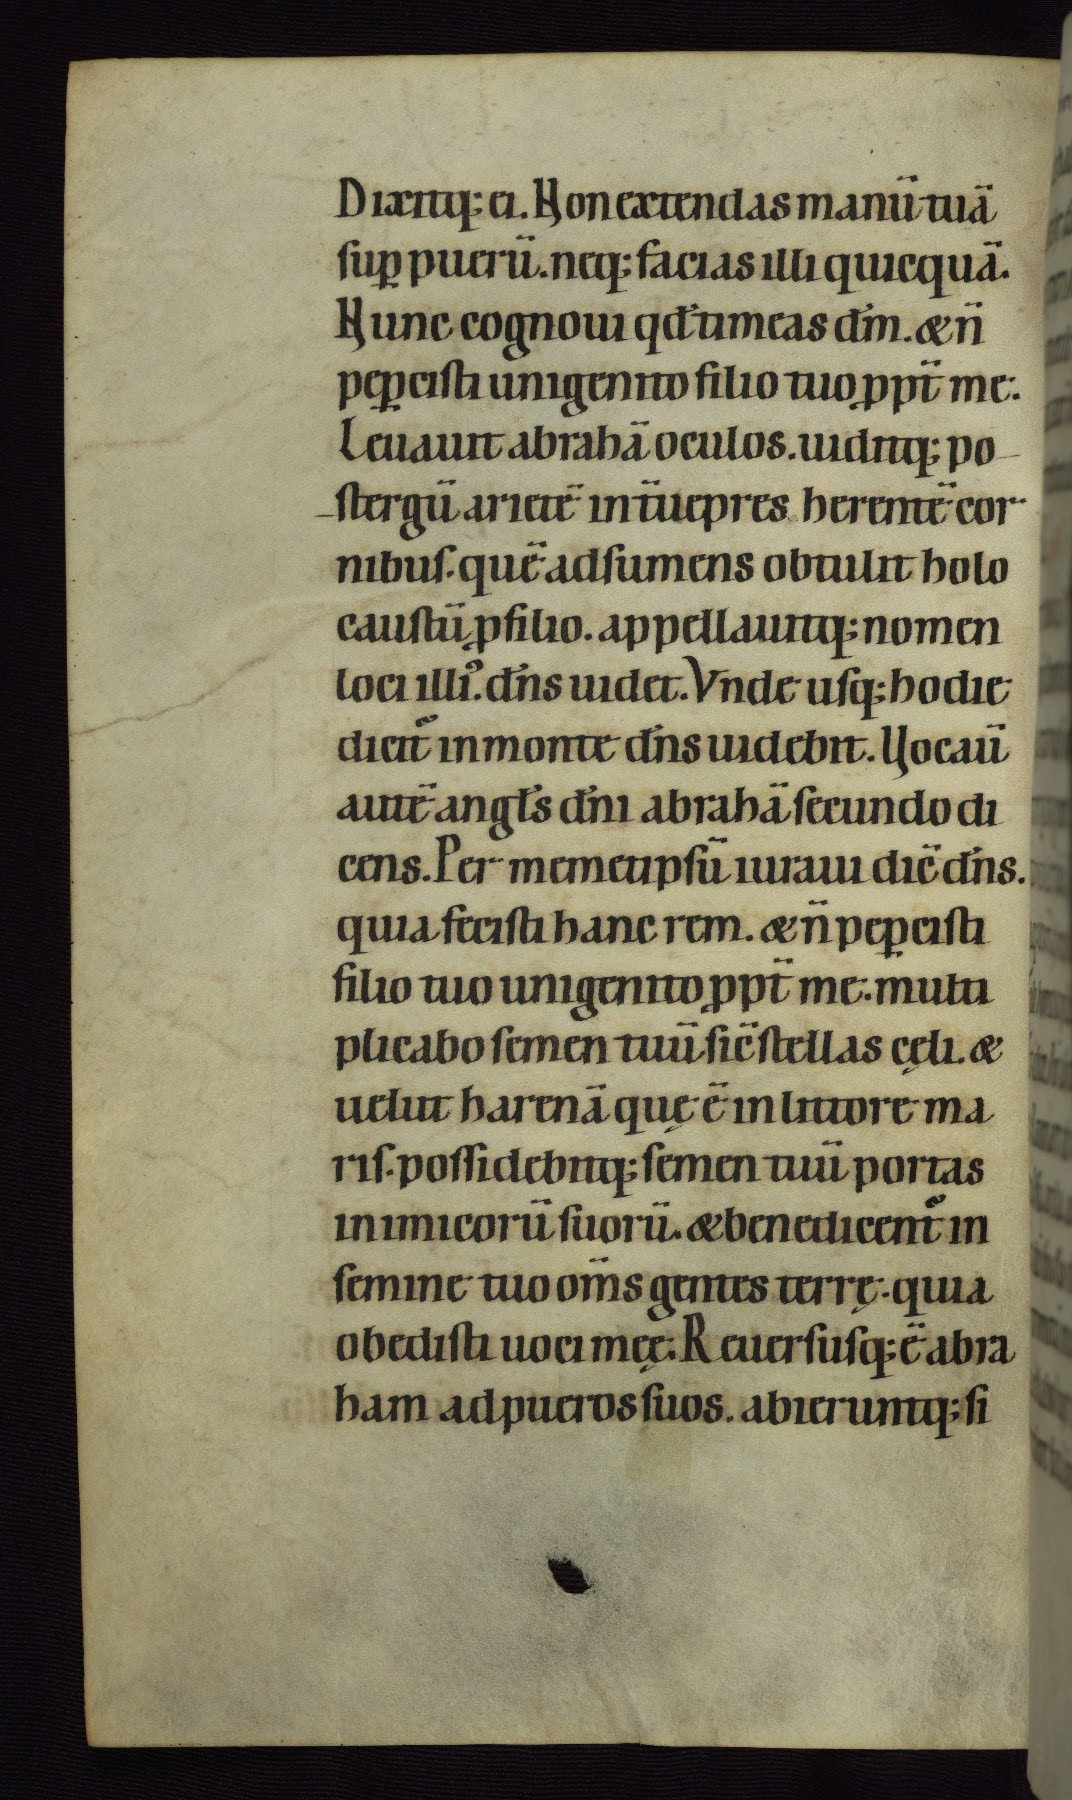 Dixitq; ei. Non extendas manū tuā
ſuꝑ puerū. neq; facias illi quicquā.
Nunc cognoui qđ timeas dm̄. & n̄
peꝑciſti unigenito filio tuo ꝓpt̄ me.
Leuauit abrahā oculos. uiditq; po
ſtergū arietē int̄ uepres herentē cor
nibuſ. quē adſumens obtulit holo
cauſtū ꝓ filio. appellauitq; nomen
loci illiꝰ. dn̄s uidet. Vnde uſq; hodie
dicit᷑ in monte dn̄s uidebit. Uocau̅
autē angl̄s dn̄i abrahā ſecundo di
cens. Per memetipſū iuraui dic̄ dn̄s.
quia feciſti hanc rem. & n̄ peꝑciſti
filio tuo unigenito ꝓpt̄ me. multi
plicabo ſemen tuū ſic̄ ſtellas cęli. &
uelut harenā quę ē in littore ma
riſ. poſſidebitq; ſemen tuū portas
inimicorū ſuorū. & benedicent᷑ in
ſemine tuo om̄s gentes terrę. quia
obediſti uoci meę. Reuerſuſq; ē abra
ham ad pueros ſuos. abieruntq; ſi